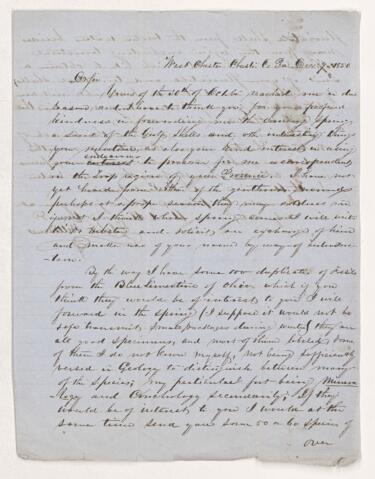 West Chester Chester Co Pa Dec 7 1850
Yours of the 28th of Octbr reached me in due
season, and I have to thank you, for your proffered
kindness in forwarding me the coming Spring
a Suit of the Gulf Shells and other interesting things
you mention, as also your kind interest in
endeavour
your to procure for me a correspondent
in the Zoo region of your Province. I have not
yet heard from either of the gentlemen
perhaps at a proper season they may address me
if not I think when spring comes I will write
to and solicit an exchange of him
and make use of your name by way of introduc-
tion.
By the way I have some 100 duplicates of fossils
from the Blue limestone of Ohio which if you
think they would be of interest to you I will
forward in the spring (I suppose it would not be
safe to transmit small packages during winter) they are
all good specimens, and most of them labeled, some
of them I do not know myself, not being sufficiently
versed in Geology to distinguish between many
of the Species; my particular fort being Minera-
logy and Conchology secondarily; If they
would be of interest to you I would at the
same time send you some 50 or 60 species of
over